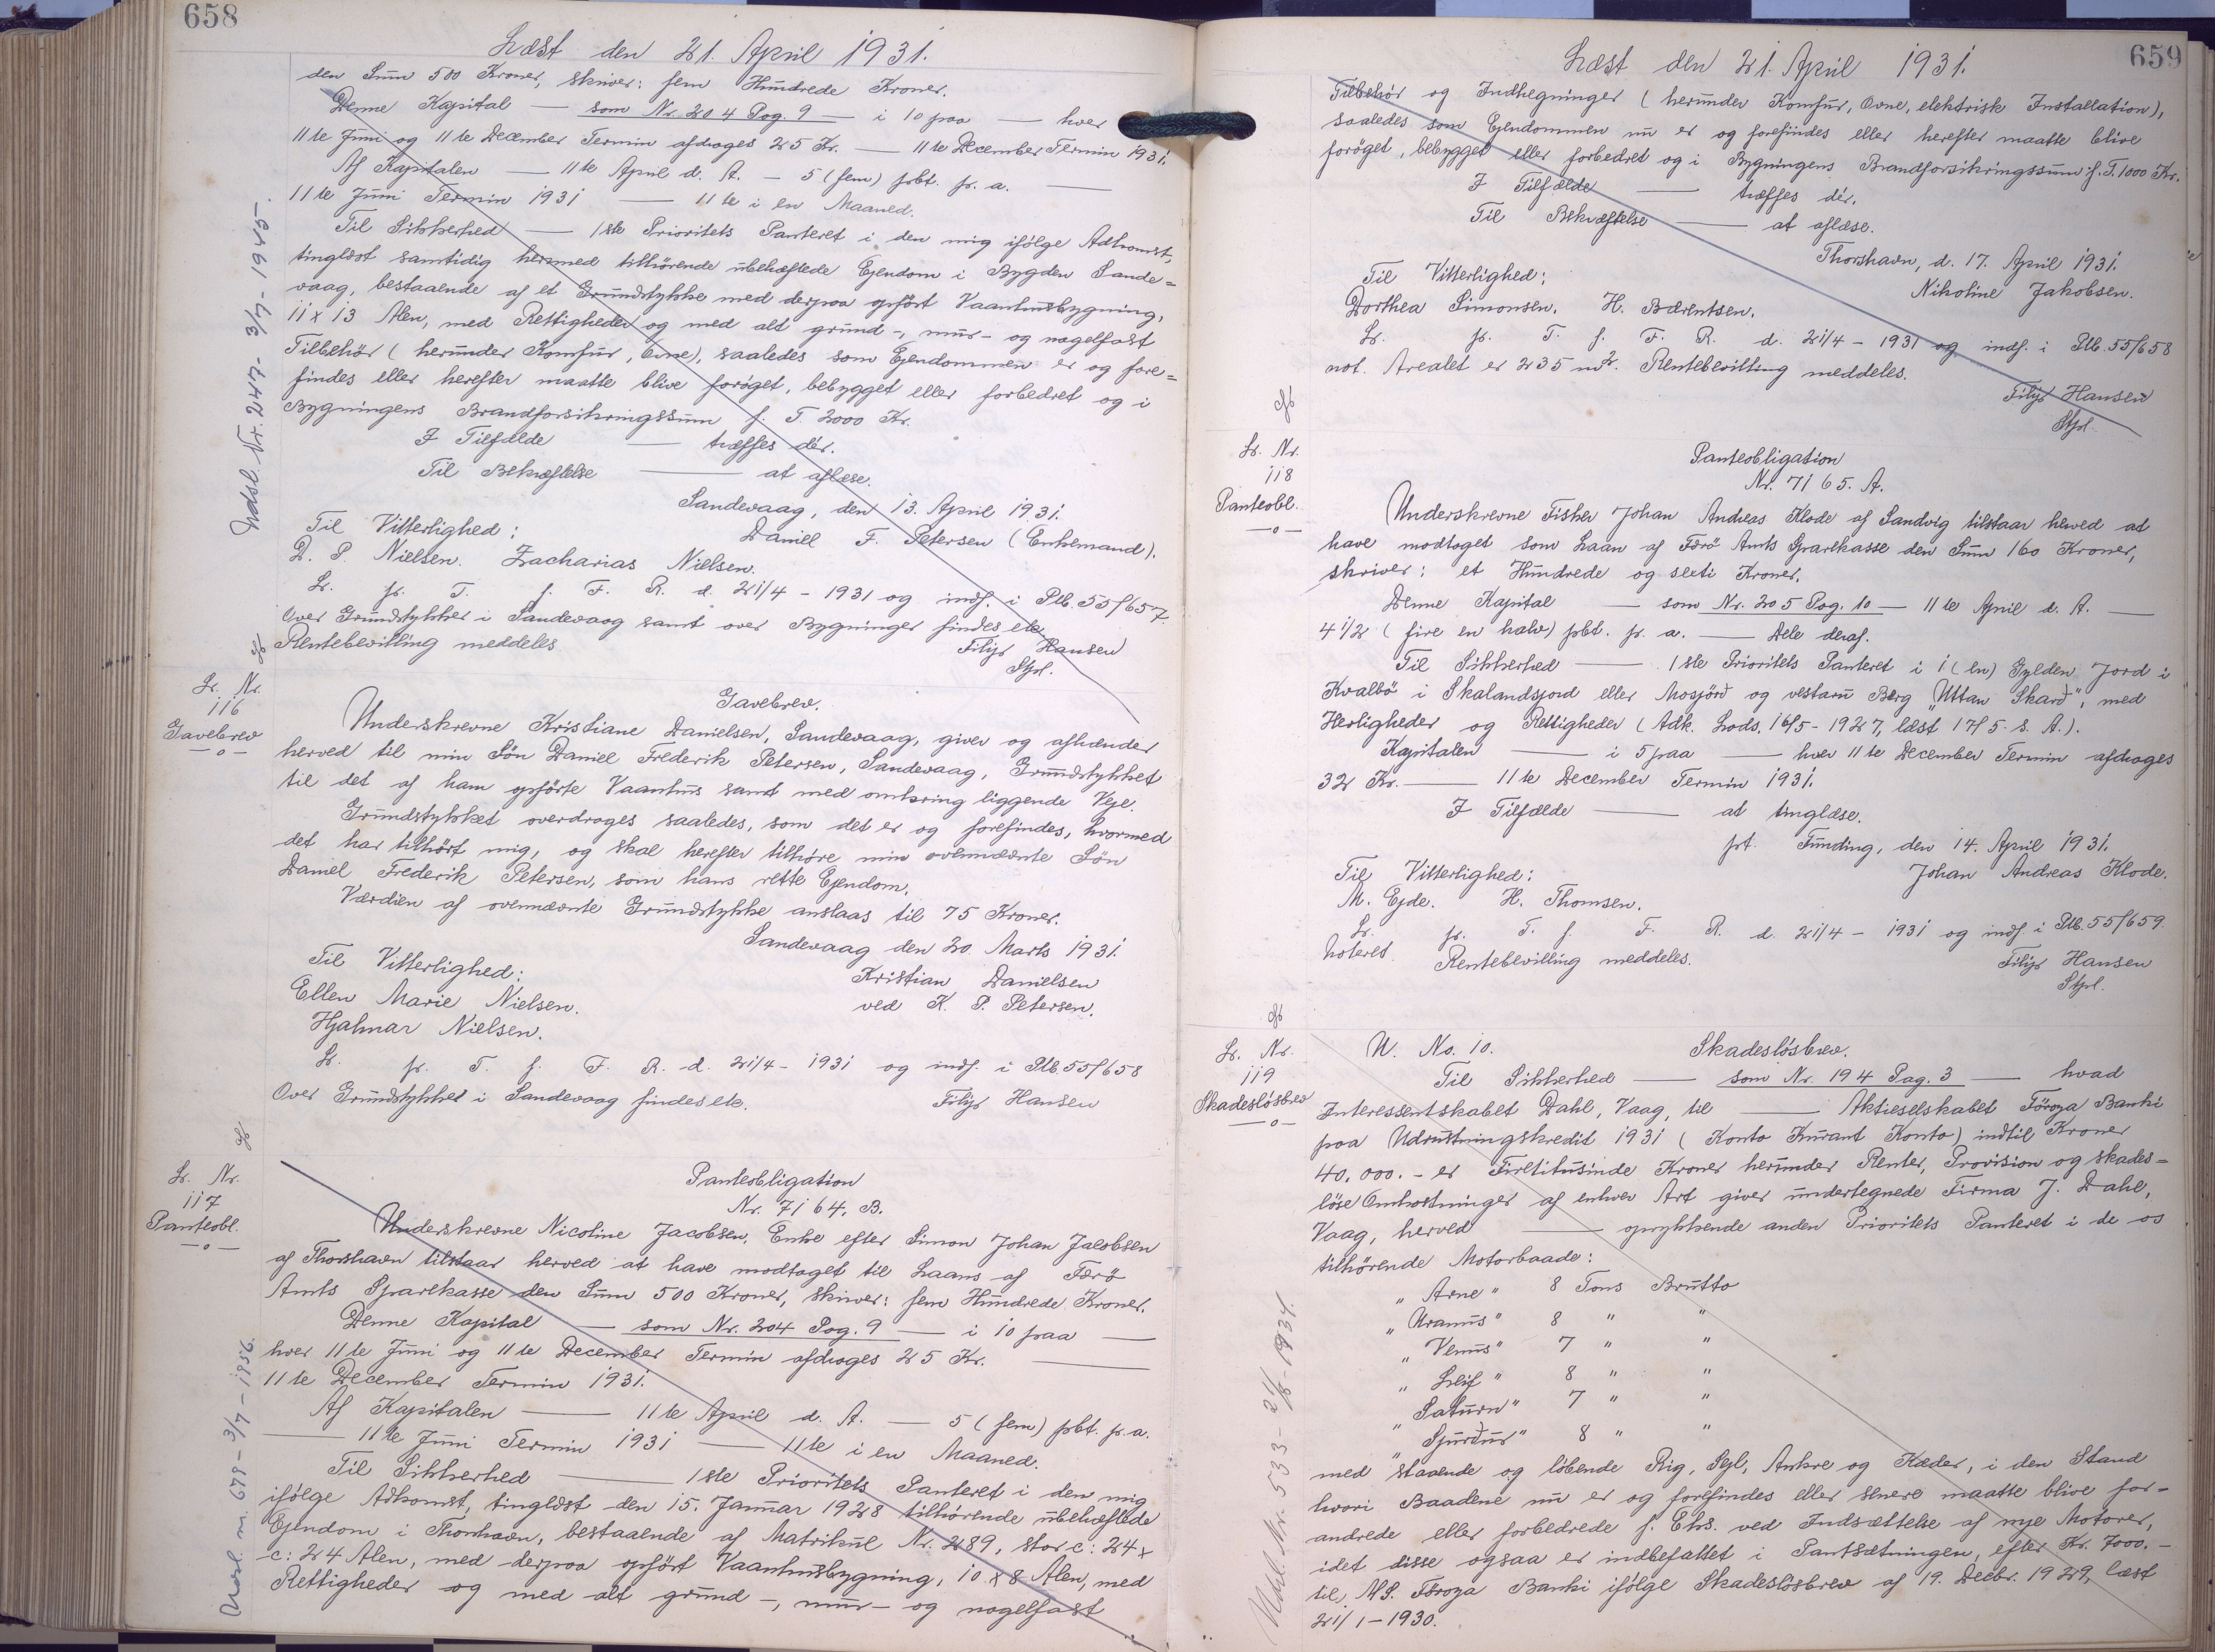 658
Læst den 21. April 1931.
den Sum 500 Kroner, skriver: fem Hundrede Kroner.
Denne Kapital — som Nr. 204 Pag. 9 — i 10 paa — hver
11te Juni og 11te December Termin afdrages 25 Kr. — 11te December Termin 1931.
Af Kapitalen — 11te April d. A. — 5 (fem) pCt. p. a. —
11te Juni Termin 1931 — 11te i en Maaned.
Til Sikkerhed — 1ste Prioritets Panteret i den mig ifølge Adkomst,
tinglæst samtidig hermed tilhørende ubehæftede Ejendom i Bygden Sande=
vaag, bestaaende af et Grundstykke med derpaa opført Vaanhusbygning,
11 x 13 Alen, med Rettigheder og med alt grund-, mur- og nagelfast
Tilbehør (herunder Komfur, Ovne), saaledes som Ejendommen er og fore=
findes eller herefter maatte blive forøget, bebygget eller forbedret og i
Bygningens Brandforsikringssum f. T. 2000 Kr.
I Tilfælde — træffes dér.
Til Bekræftelse — at aflæse.
Sandevaag, den 13. April 1931.
Til Vitterlighed: Daniel F. Petersen (Enkemand).
D. P. Nielsen. Zacharias Nielsen.
Lr. p. T. f. F. R. d. 21/4 - 1931 og indf. i Ptb. 55/657.
Over Grundstykker i Sandevaag samt over Bygninger findes ek.
Rentebevilling meddeles. Filip Hansen
Stpl.
Indsl. Nr. 247- 3/7 - 1945-.
Lr. Nr.
116
Gavebrev
—o—
Gavebrev.
Underskrevne Kristiane Danielsen, Sandevaag, giver og afhænder
herved til min Søn Daniel Frederik Petersen, Sandevaag, Grundstykket
til det af ham opførte Vaanhus samt med omkring liggende Veje.
Grundstykket overdrages saaledes, som det er og forefindes, hvormed
det har tilhørt mig, og skal herefter tilhøre min ovennævnte Søn
Daniel Frederik Petersen, som hans rette Ejendom.
Værdien af ovennævnte Grundstykke anslaas til 75 Kroner.
Sandevaag den 20. Marts 1931.
Til Vitterlighed: Kristian Danielsen
Ellen Marie Nielsen. ved K. P. Petersen.
Hjalmar Nielsen.
Lr. p. T. f. F. R. d. 21/4 - 1931 og indf. i Ptb. 55/658
Over Grundstykket i Sandevaag findes ek. Filip Hansen
Lr. Nr.
117
Panteobl.
—o—
Panteobligation
Nr. 7164. B.
Underskrevne Nicoline Jacobsen, Enke efter Simon Johan Jacobsen
af Thorshavn tilstaar herved at have modtaget til Laans af Færø
Amts Sparekasse den Sum 500 Kroner, skriver: fem Hundrede Kroner.
Denne Kapital — som Nr. 204 Pag. 9 — i 10 paa —
hver 11te Juni og 11te December Termin afdrages 25 Kr. —
11te December Termin 1931.
Af Kapitalen — 11te April d. A. — 5 (fem) pCt. p. a.
— 11te Juni Termin 1931 — 11te i en Maaned.
Til Sikkerhed — 1ste Prioritets Panteret i den mig
ifølge Adkomst, tinglæst den 15. Januar 1928 tilhørende ubehæftede
Ejendom i Thorshavn, bestaaende af Matrikul Nr. 289, stor c: 24 x
c: 24 Alen, med derpaa opført Vaanhusbygning, 10 x 8 Alen, med
Rettigheder og med alt grund-, mur- og nagelfast
659
Læst den 21. April 1931.
Tilbehør og Indhegninger (herunder Komfur, Ovne, elektrisk Installation),
saaledes som Ejendommen nu er og forefindes eller herefter maatte blive
forøget, bebygget eller forbedret og i Bygningens Brandforsikringssum f. T. 1000 Kr.
I Tilfælde — træffes dér.
Til Bekræftelse — at aflæse.
Thorshavn, d. 17. April 1931.
Til Vitterlighed: Nikoline Jakobsen.
Dorthea Simonsen. H. Bærentsen.
Lr. p. T. f. F. R. d. 21/4 - 1931 og indf. i Ptb. 55/658
not. Arealet er 235 m2. Rentebevilling meddeles.
Filip Hansen
Stpl.
Lr. Nr.
118
Panteobl.
—o—
Panteobligation
Nr. 7165. A.
Underskrevne Fisker Johan Andreas Klode af Sandvig tilstaar herved at
have modtaget som Laan af Færø Amts Sparekasse den Sum 160 Kroner,
skriver: et Hundrede og seksti Kroner.
Denne Kapital — som Nr. 205 Pag. 10 — 11te April d. A. —
4 1/2 (fire en halv) pCt. p. a. — Dele deraf.
Til Sikkerhed — 1ste Prioritets Panteret i 1 (en) Gylden Jord i
Kvalbø i Skalandsjord eller Mosjörð og vestaru Berg „Uttan Skarð", med
Herligheder og Rettigheder (Adk. Lods. 16/5 - 1927, læst 17/5 s. A.).
Kapitalen — i 5 paa — hver 11te December Termin afdrages
32 Kr. — 11te December Termin 1931.
I Tilfælde — at tinglæse.
pt. Funding, den 14. April 1931.
Til Vitterlighed: Johan Andreas Klode.
M. Ejde. H. Thomsen.
Lr. p. T. f. F. R. d. 21/4 - 1931 og indf. i Ptb. 55/659.
noteret. Rentebevilling meddeles. Filip Hansen
Stpl.
Lr. Nr.
119
Skadesløsbrev
—o—
U. No. 10. Skadesløsbrev.
Til Sikkerhed — som Nr. 194 Pag. 3 — hvad
Interessentskabet Dahl, Vaag, til — Aktieselskabet Föroya Banki
paa Udrustningskredit 1931 (Konto Kurant Konto) indtil Kroner
40,000.- er Firetitusinde Kroner herunder Renter, Provision og skades=
løse Omkostninger af enhver Art giver undertegnede Firma J. Dahl,
Vaag, herved — oprykkende anden Prioritets Panteret i de os
tilhørende Motorbaade:
„Arne" 8 Tons Brutto
„Uranus" 8 " "
„Venus" 7 " "
„Leif" 8 " "
„Saturn" 7 " "
„Sjurður" 8 " "
med staaende og løbende Rig, Sejl, Ankre og Kæder, i den Stand
hvori Baadene nu er og forefindes eller senere maatte blive for=
andrede eller forbedrede f. Eks. ved Indsættelse af nye Motorer,
idet disse ogsaa er indbefattet i Pantsætningen, efter Kr. 7000.-
til A/S. Föroya Banki ifølge Skadesløsbrev af 19. Decbr. 1929, læst
21/1 - 1930.